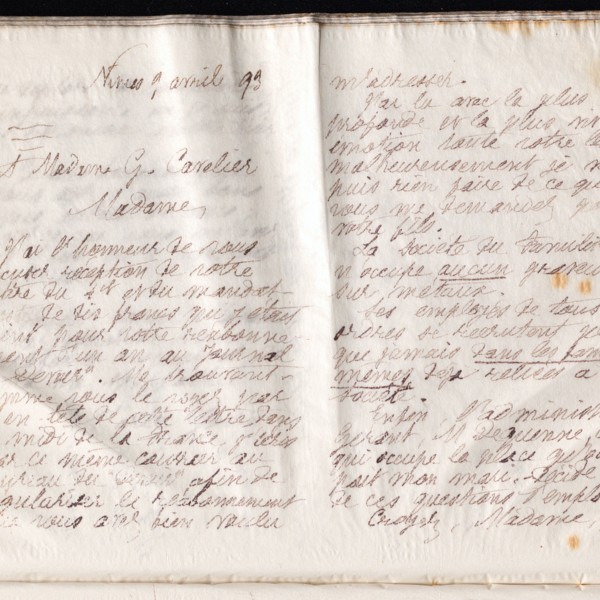 Nimes 9 avril 93
A Madame G. Cavalier
Madame,
J'ai l'honneur de vous
accuser réception de votre
lettre du 4 et du mandat
de dix francs qui y était
pour votre réabonne-
ment d'un an au journal
"Devoir". Me trouvant
comme vous le voyez par
en tête de cette lettre dans
midi de la France, j'écris
par ce même courrier au
bureau du "Devoir" afin de
régulariser le réabonnement
que vous avez bien voulu
m'adresser.
J'ai lu avec la plus
profonde et la plus vive
émotion toute votre
malheureusement je ne
puis rien faire de ce que
vous me demandez
votre fils.
La Société du Familis
n'occupe aucun graveur
sur métaux.
Les employés de tous
ordres se recrutent
que jamais dans les fam
mêmes déjà reliées à
société.
Enfin l'adminis
Gérant, M. Dequenne,
qui occupe la place qu'
pait mon mari décide
de ces questions d'emploi
Croyez, Madame,